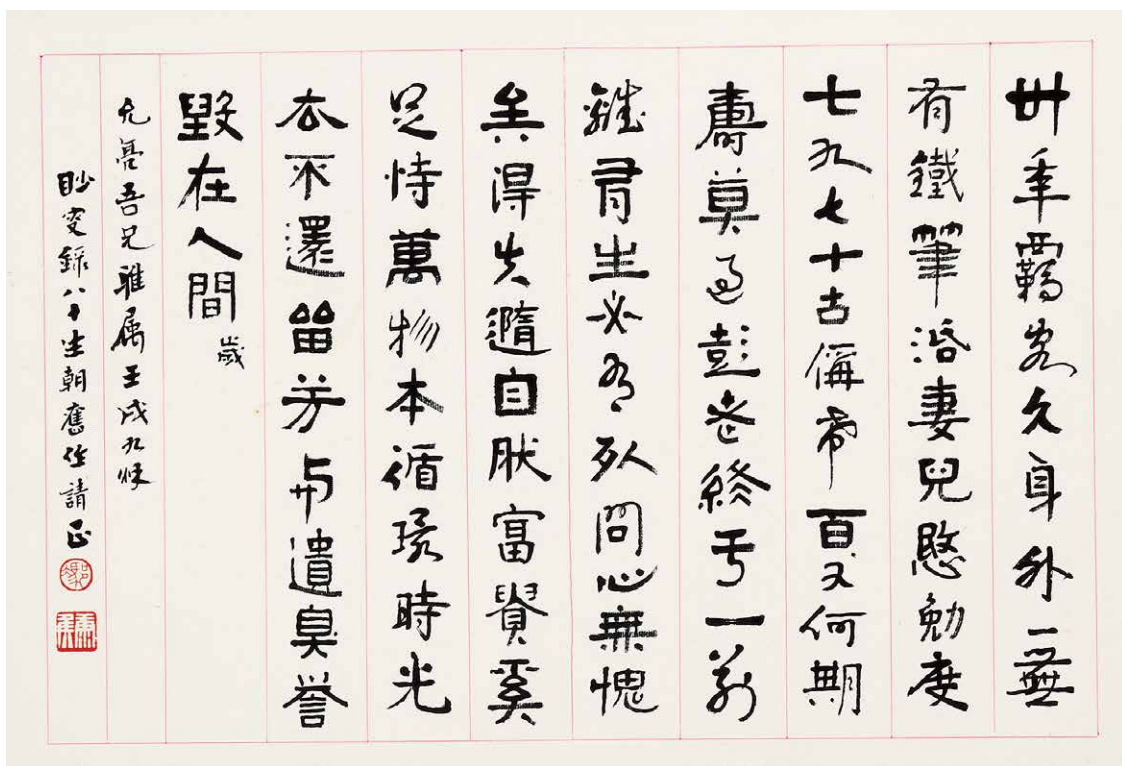 卅年羈客久身外一無
有鐵筆活妻兒愍勉度
七九七十古稱希百又何期
壽莫過彭老終于一別
難尋生必有死問心無愧
矣得失隨自然富貴奚
足恃萬物本循環時光
去不還留芳与遺臭誉
毀在人間 歲
允亮吾兄雅属壬戌九秋
眇叟錄八十生朝舊作請正